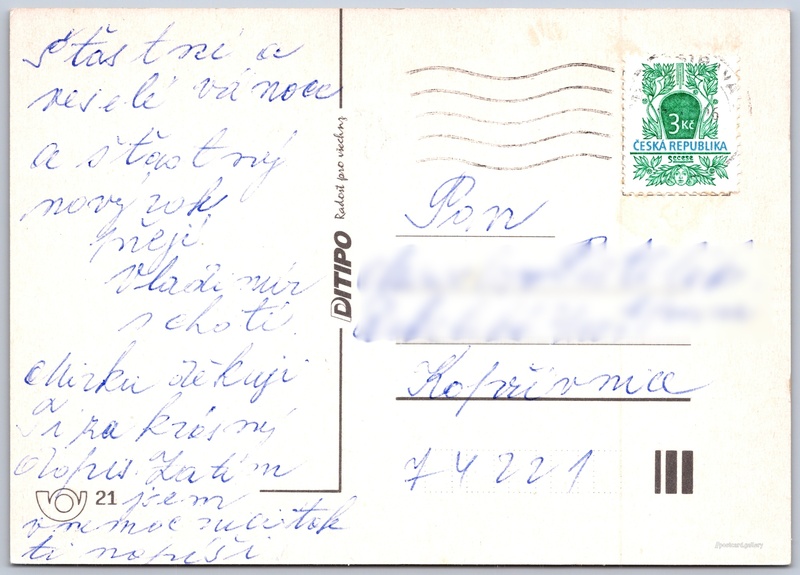 Šťastné a
veselé vánoce
a šťastný
nový rok
přejí
Vladimír
s chotí.
Mirku děkuji
Ti za krásný
dopis. Zatím
jsem
v nemoc
ti napíši
21
DITIPO Radost pro všechny
3 Kč
ČESKÁ REPUBLIKA
Secese
Pan
Kopřivnice
74221